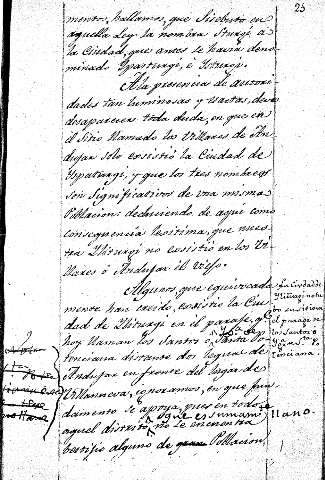 25
mento, hallamos, que Sisebuto en
aquella Ley la nombra Sturgi á
la Ciudad, que antes se havia deno-
minado Ypasturgi, é Ysturgi.
A la presencia de autori-
dades tan luminosas y exactas, deve
desaparecer toda duda, en que en
el Sitio llamado los Villares de An-
dujar solo existió la Ciudad de
Ypaturgi, y que los tres nombres
son significativos de una misma
Poblacion: deduciendo de aqui como
consequencia lexitima, que nues-
tra Yliturgi no existió en los Vi-
llares ó Andujar el Viejo.
Algunos, que equivocada
mente han creido, existio la Ciu-
dad de Yliturgi en el parage, q.e
hoy llaman los Santos ó Santa Po-
tenciana distante dos leguas de
Andujar en frente del lugar de
Villanueva, ignoramos, en que fun-
damento se apoya, pues en todo
aquel distrito, que es sumam.te llano.
no se encuentra
bestijio alguno de Poblacion,
La Ciudad de
Yliturgi no tu-
bo existencia
en el parage de
los Santos ó
Sta. P.
tenciana.